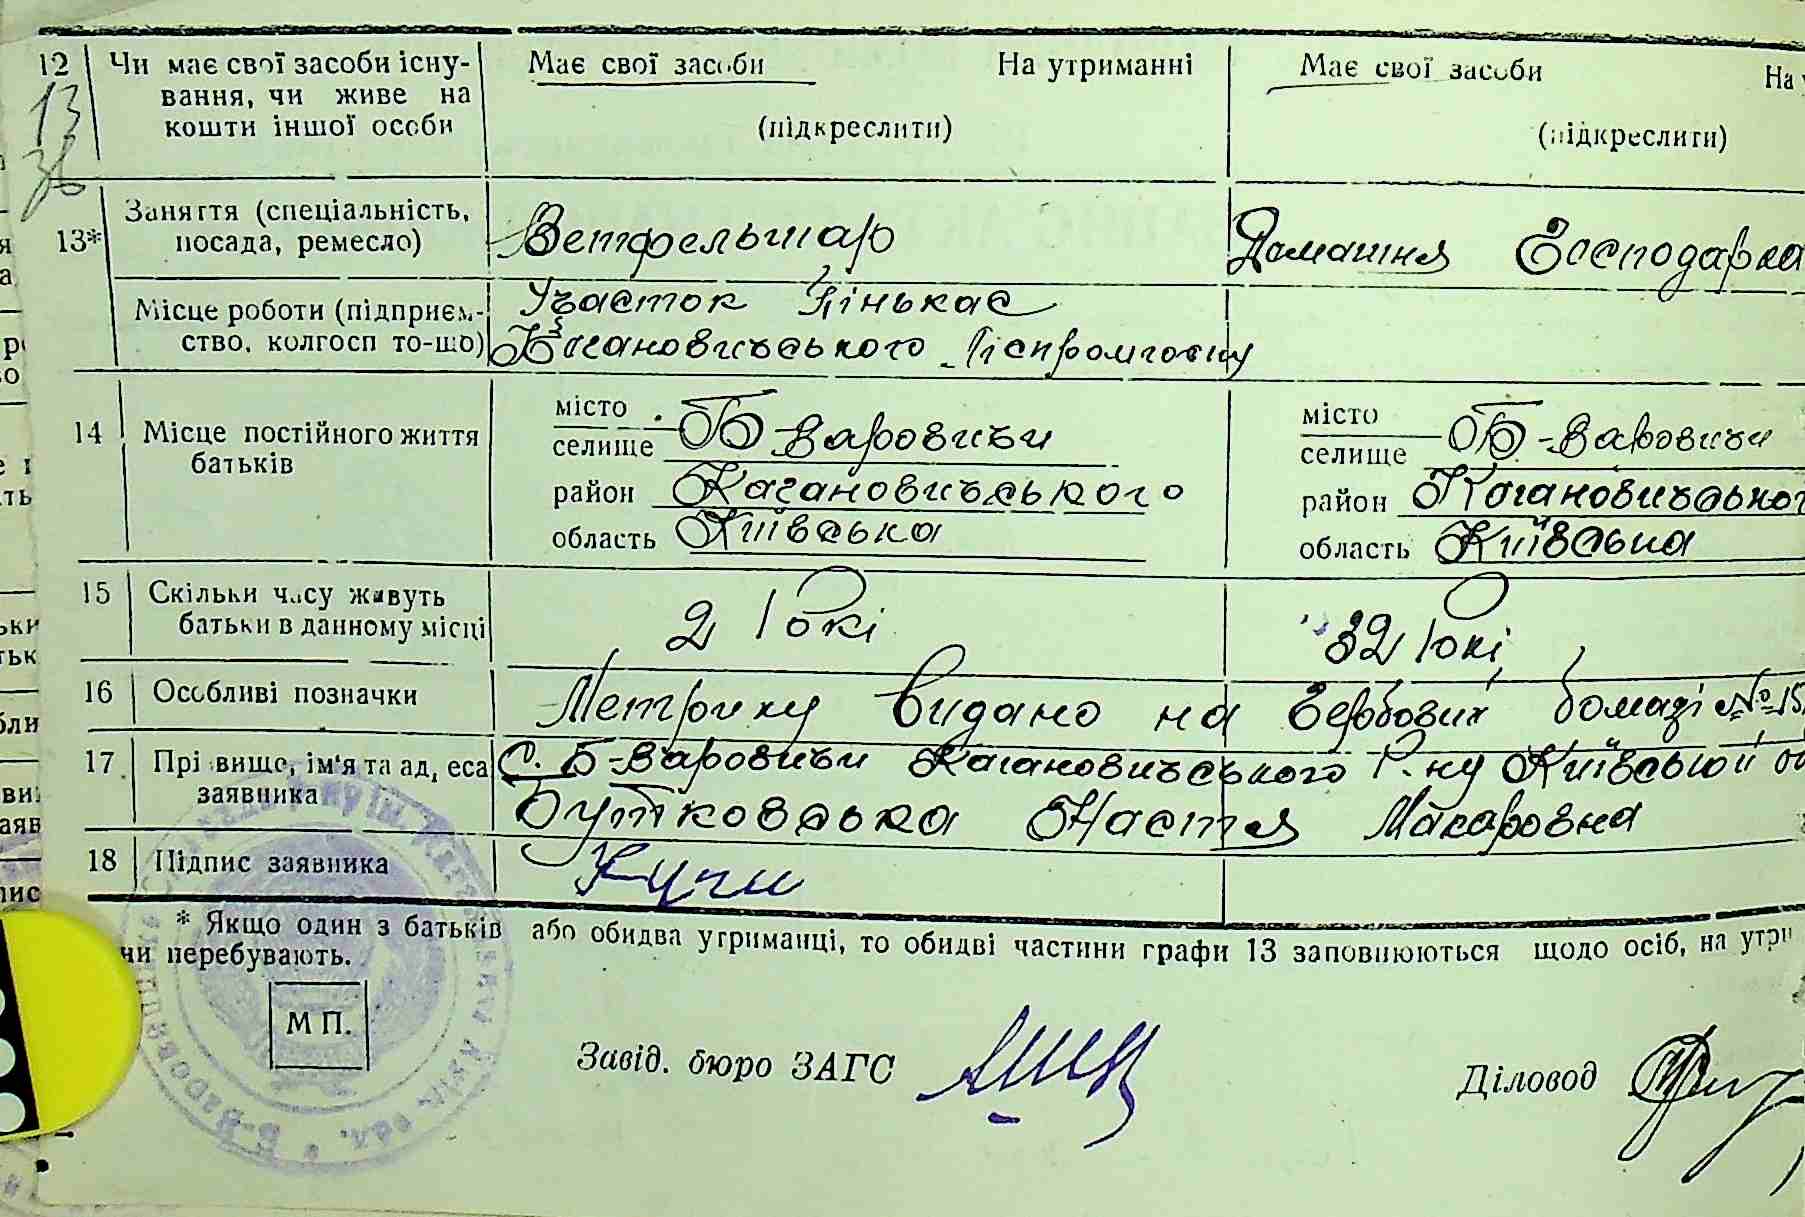 12 Чи має свої засоби існу- Має свої засоби На утриманні Має свої засоби На у
вання, чи живе на
кошти іншої особи (підкреслити) (підкреслити)
13
36
13* Заняття (спеціальність, посада, ремесло) Ветфельшар Домашня Господарка
Місце роботи (підприєм- Участок
ство, колгосп то-що) Кагановичського
14 Місце постійного життя батьків
місто
селище Б-Варовичи
район Кагановичського
область Київська
місто
селище Б-Варовичи
район Кагановичського
область Київська
15 Скільки часу живуть
батьки в данному місці 2 Рокі 32 Рокі
16 Особливі позначки Метрику видано на Гербовій бомазі №15
17 Прізвище, ім'я та адреса С. Б-Варовичи Кагановичського Р.ну Київській об
заявника Бутковська Настя Макаровна
18 Підпис заявника
* Якщо один з батьків або обидва утриманці, то обидві частини графи 13 заповнюються щодо осіб, на утри
чи перебувають.
М П.
Завід. бюро ЗАГС
Діловод